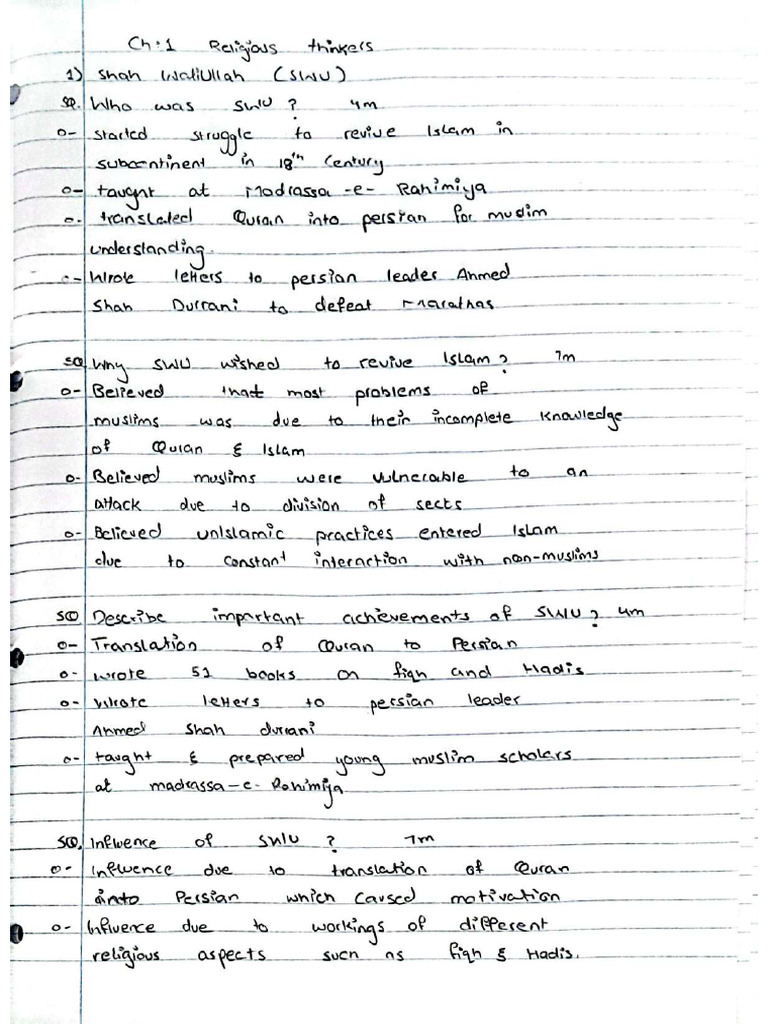 Ch:1 Religious thinkers
1) Shah WaliUllah (SWU)
SQ. Who was SWU? 4m
o- started struggle to revive Islam in
subcontinent in 18th Century
o- taught at Madrassa-e-Rahimiya
o- translated Quran into persian for muslim
understanding.
o- Wrote letters to persian leader Ahmed
Shah Durrani to defeat Marathas
SQ Why SWU wished to revive Islam? 7m
o- Believed that most problems of
muslims was due to their incomplete knowledge
of Quran & Islam
o- Believed muslims were vulnerable to an
attack due to division of sects
o- Believed unIslamic practices entered Islam
due to constant interaction with non-muslims
SQ Describe important achievements of SWU? 4m
o- Translation of Quran to Persian
o- wrote 51 books on fiqh and Hadis
o- Wrote letters to persian leader
Ahmed Shah durrani
o- taught & prepared young muslim scholars
at madrassa-e-Rahimiya
SQ. Influence of SWU? 7m
o- Influence due to translation of Quran
into Persian which caused motivation
o- Influence due to workings of different
religious aspects such as fiqh & Hadis.